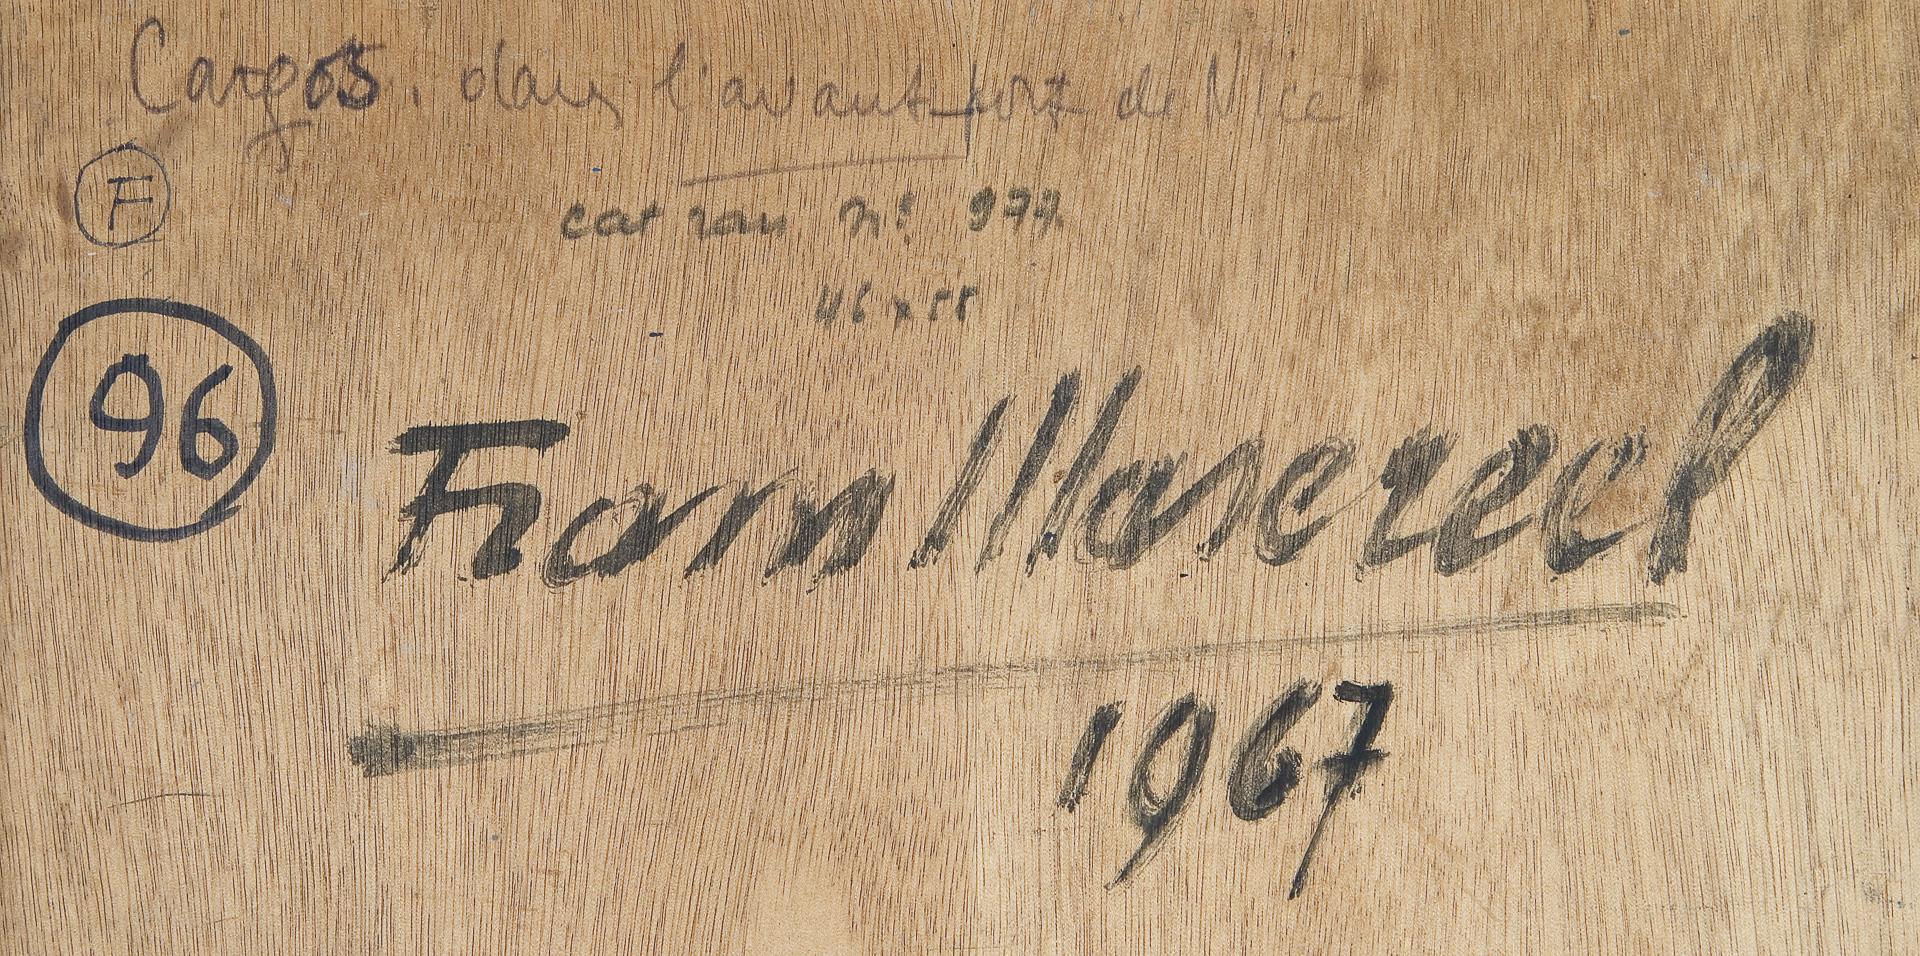 Cargos. dans l'avant port de Nice
F
cat rau nº 977
46 x 55
96
Frans Masereel
1967